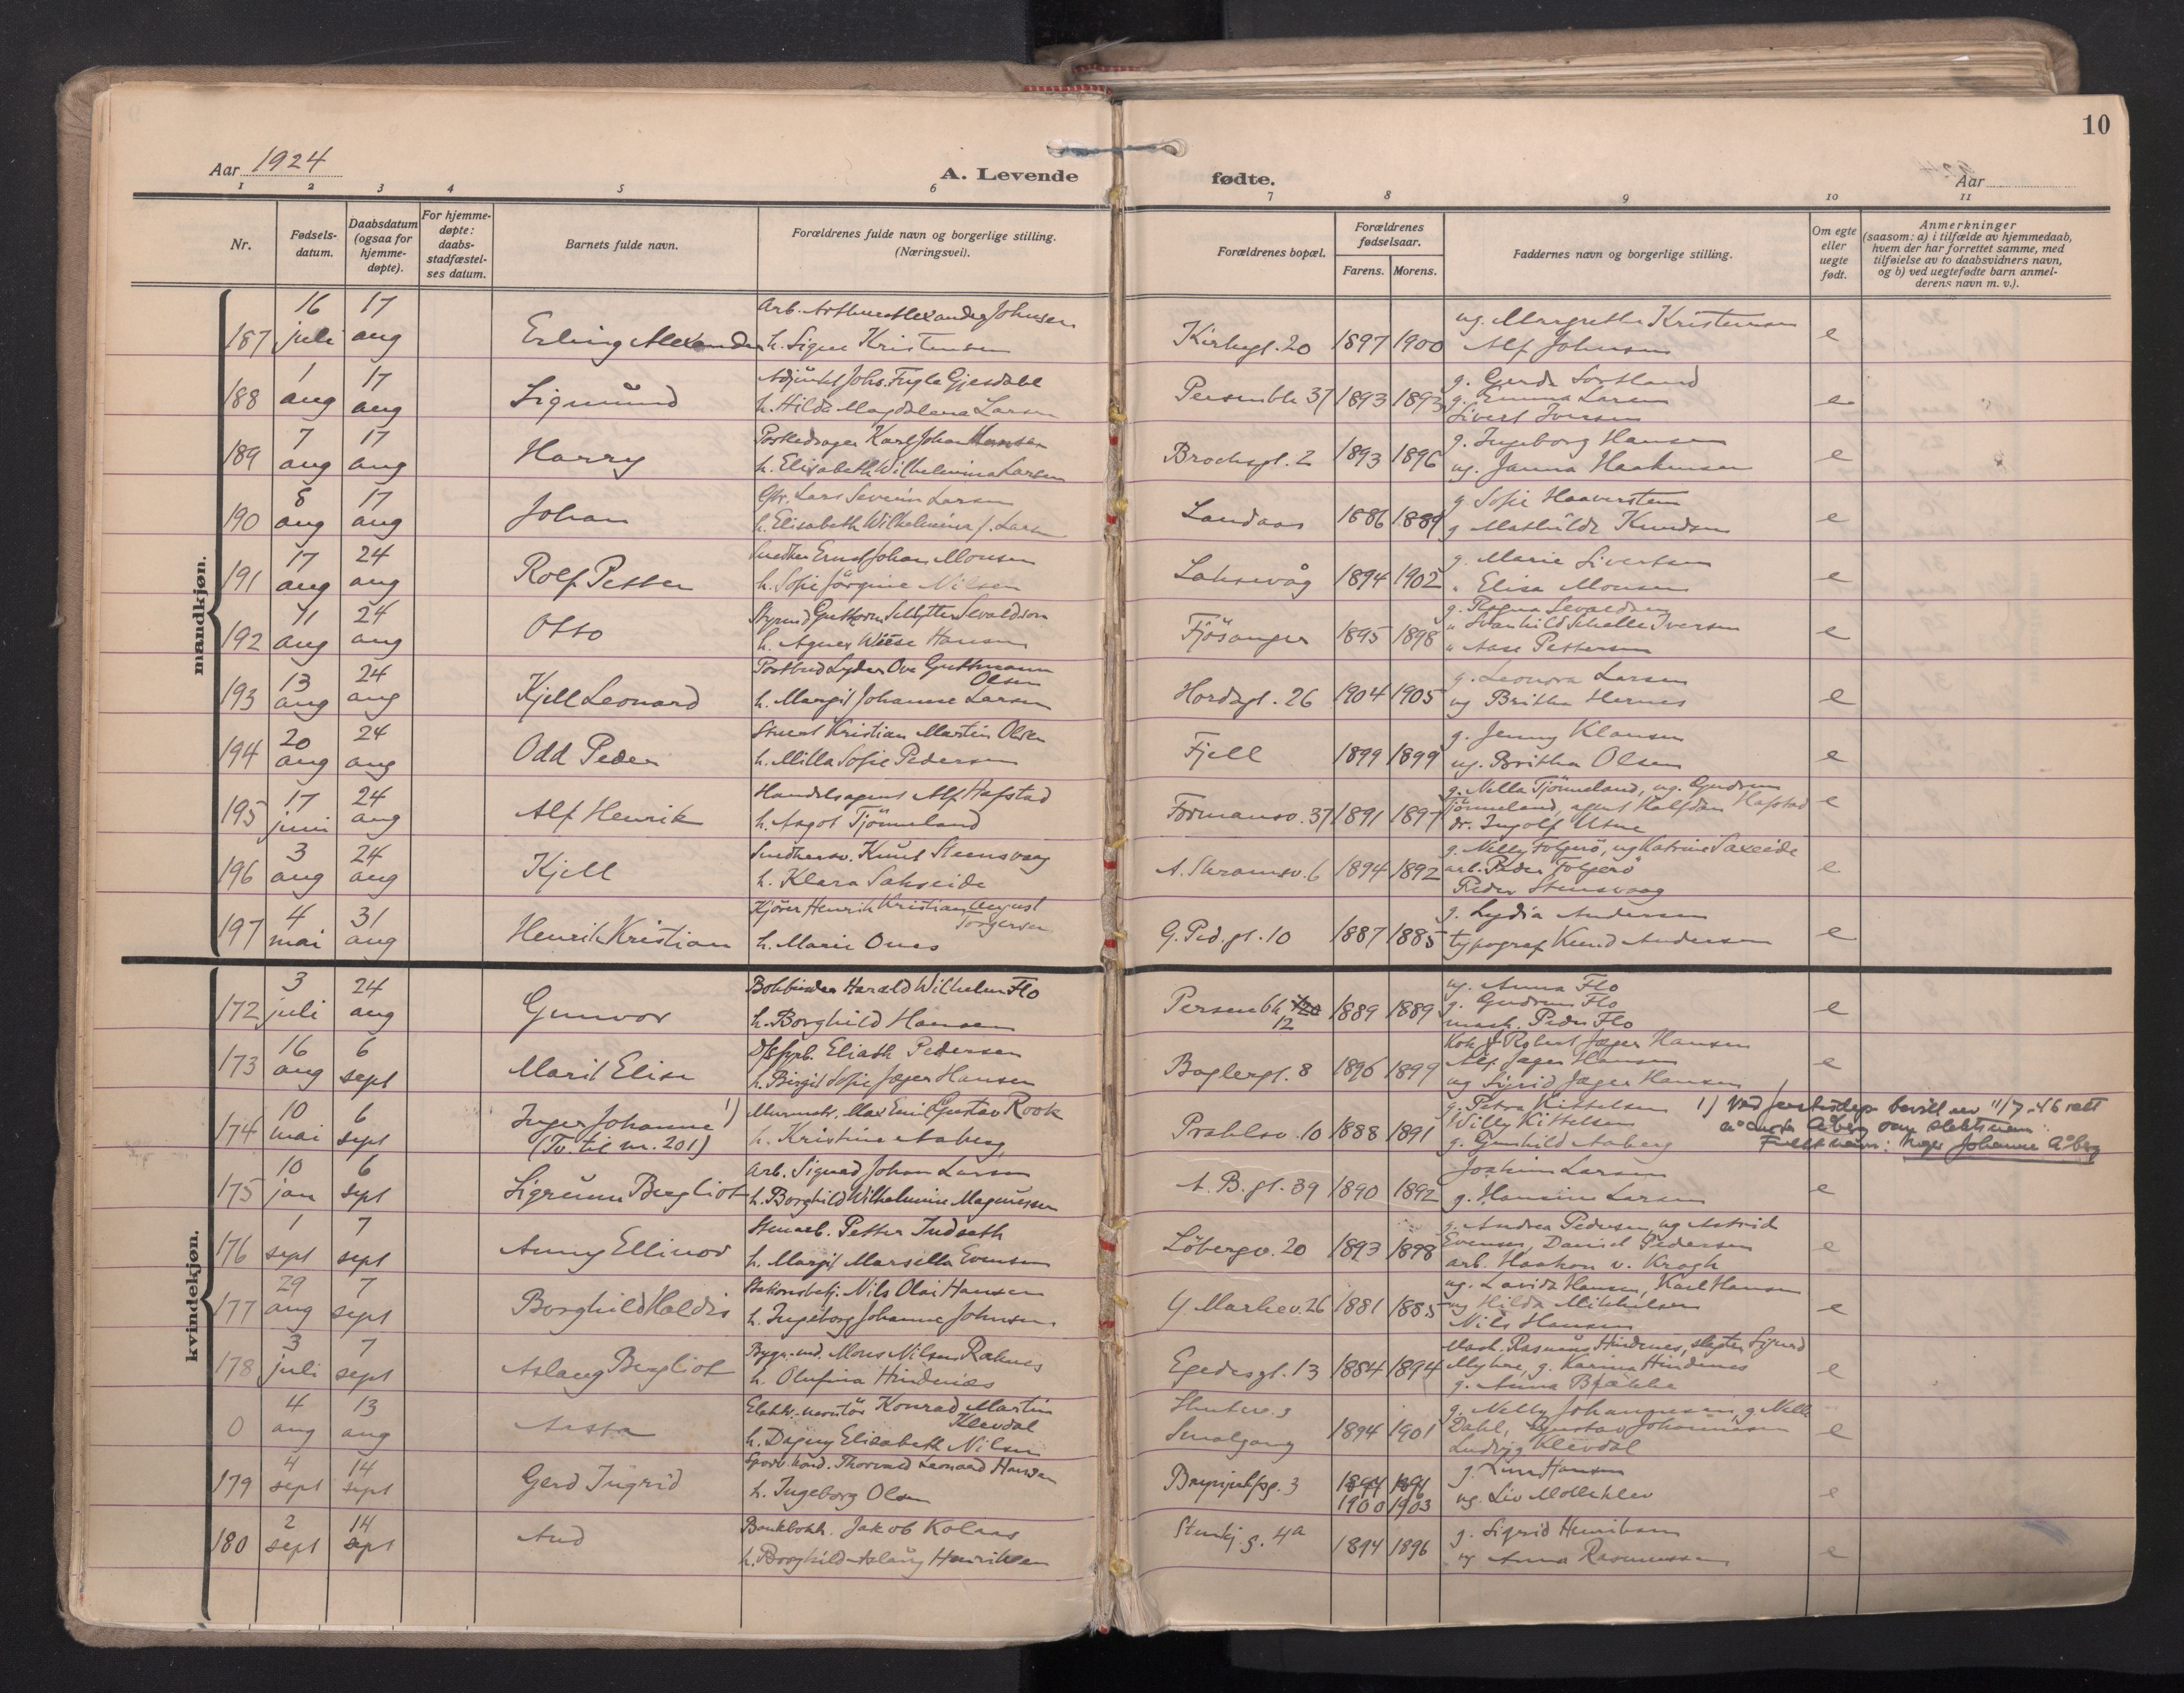 10
Aar 1924
A. Levende fødte.
Aar
1 2 3 4 5 6 7 8 9 10 11
Nr.
Fødsels-
datum.
Daabsdatum
(ogsaa for
hjemme-
døpte).
For hjemme-
døpte:
daabs-
stadfæstel-
ses datum.
Barnets fulde navn.
Forældrenes fulde navn og borgerlige stilling.
(Næringsvei).
Forældrenes bopæl.
Forældrenes
fødselsaar.
Farens. Morens.
Faddernes navn og borgerlige stilling.
Om egte
eller
uegte
født.
Anmerkninger
(saasom: a) i tilfælde av hjemmedaab,
hvem der har forrettet samme, med
tilføielse av to daabsvidners navn,
og b) ved uegtefødte barn anmel-
derens navn m. v.).
mandkjøn.
16 17 Arb. Arthur Alexander Johnsen ug. Margrethe Kristensen
187 juli aug Erling Alexander h. Signe Kristensen Kirkegt. 20 1897 1900 Alf Johnsen e
1 17 Adjunkt Johs. Fugle Gjesdahl g. Gerda Sortland
188 aug aug Sigmund h. Hilda Magdalena Larsen Persenbk 37 1893 1893 g. Emma Larsen e
Sivert Iversen
7 17 Karl Johan Hansen g. Ingeborg Hansen
189 aug aug Harry h. Elisabeth Wilhelmina Larsen Brochsgt. 2 1893 1896 ug. Janna Haakensen e
8 17 Lars Severin Larsen g Sofie Haaverstein
190 aug aug Johan h. Elisabeth Wilhelmina f. Larsen Landaas 1886 1889 g Mathilde Knudsen e
17 24 Snedker Ernst Johan Monsen g. Marie Sivertsen
191 aug aug Rolf Petter h. Sofie Jörgine Nilsen Laksevåg 1894 1902 " Elisa Monsen e
11 24 Styrmd Guttorm Schytter Sevaldson g. Ragna Sevaldsen
192 aug aug Otto h. Agnes Wiese Hansen Fjösanger 1895 1898 " Svanhild Schelle Iversen e
" Aase Pettersen
13 24 Postbud Lyder Ove Guttmann Olsen g. Leonora Larsen
193 aug aug Kjell Leonard h. Margit Johanne Larsen Hordagt. 26 1904 1905 ug Britha Hernes e
20 24 Stuert Kristian Martin Olsen g. Jenny Klausen
194 aug aug Odd Peder h. Milla Sofie Pedersen Fjell 1899 1899 ug. Britha Olsen e
17 24 Handelsagent Alf Hafstad g. Nella Tjönneland, ug. Gudrun
195 juni aug Alf Henrik h. Aagot Tjönneland Formansv. 37 1891 1897 Tjönneland, agent Halfdan Hafstad e
dr. Ingolf Utne
3 24 Snedkersv. Knut Steensvaag g. Nelly Folgerö, ug Katrine Saxeide
196 aug aug Kjell h. Klara Sakseide A. Skramsv. 6 1894 1892 arb. Peder Folgerö e
Peder Stensvaag
4 31 Kjörer Henrik Kristian August Torgersen g. Lydia Andersen
197 mai aug Henrik Kristian h. Marie Ones G. Ped. gt. 10 1887 1885 typograf Knud Andersen e
kvindekjøn.
3 24 Bokbinder Harald Wilhelm Flo ug. Anna Flo
172 juli aug Gunvor h. Borghild Hansen Persenbk 12 1889 1889 g. Gudrun Flo e
mask. Peder Flo
16 6 Eliath Pedersen Kok Robert Jæger Hansen
173 aug sept Marit Elise h. Birgit Sofie Jæger Hansen Baglergt. 8 1896 1899 Alf Jæger Hansen e
ug Sigrid Jæger Hansen
10 6 Murmstr. Max Emil Gustav Rook g. Petra Kittelsen
174 mai sept Inger Johanne 1) h. Kristine Aaberg Prahlsv. 10 1888 1891 Willy Kittelsen
(Tv. til nr. 201) g. Gunhild Aaberg
1) Ved bevill av 11/7-46 rett
Åberg som slektsnavn.
Fullt navn: Inger Johanne Åberg
10 6 Arb. Sigurd Johan Larsen Joakim Larsen
175 jan sept Sigrunn Bergliot h. Borghild Wilhelmine Magnussen A. B. gt. 39 1890 1892 g. Hansine Larsen e
1 7 Stuearb. Petter Indseth g. Andrea Pedersen, ug Astrid
176 sept sept Anny Ellinor h. Margit Marsella Evensen Löbergv. 20 1893 1898 Evensen, Daniel Pedersen e
arb. Haakon v. Krogh
29 7 Stationsbetj. Nils Olai Hansen ug. Lavida Hansen, Karl Hansen
177 aug sept Borghild Haldis h. Ingeborg Johanne Johnsen Y Markev. 26 1881 1885 ug Hilda Mikkelsen e
Nils Hansen
3 7 Bygn. Mons Nilsen Raknes Mask. Rasmus Hindenes, slagter Sigurd
178 juli sept Aslaug Bergliot h. Olufina Hindenæs Egedesgt. 13 1884 1894 Myhre, g. Karina Hindenes e
g. Anna Brække
4 13 Elektr. montör Konrad Martin Klevdal g. Nelly Johannesen, g Nelle
0 aug aug Aasta h. Dagny Elisabeth Nilsen Smalgang 1894 1901 Dahl, Gustav Johannesen e
Ludvig Klevdal
4 14 Sporv. kond. Thorvald Leonard Hansen g. Lina Hansen
179 sept sept Gerd Ingrid h. Ingeborg Olsen 3 1894 1896 ug. Liv Mollekleiv e
1900 1903
2 14 Bankbokh. Jakob Kolaas g. Sigrid Henriksen
180 sept sept Aud h. Borghild Aslaug Henriksen Stenkj. g. 4a 1894 1896 ug Anna Rasmussen e